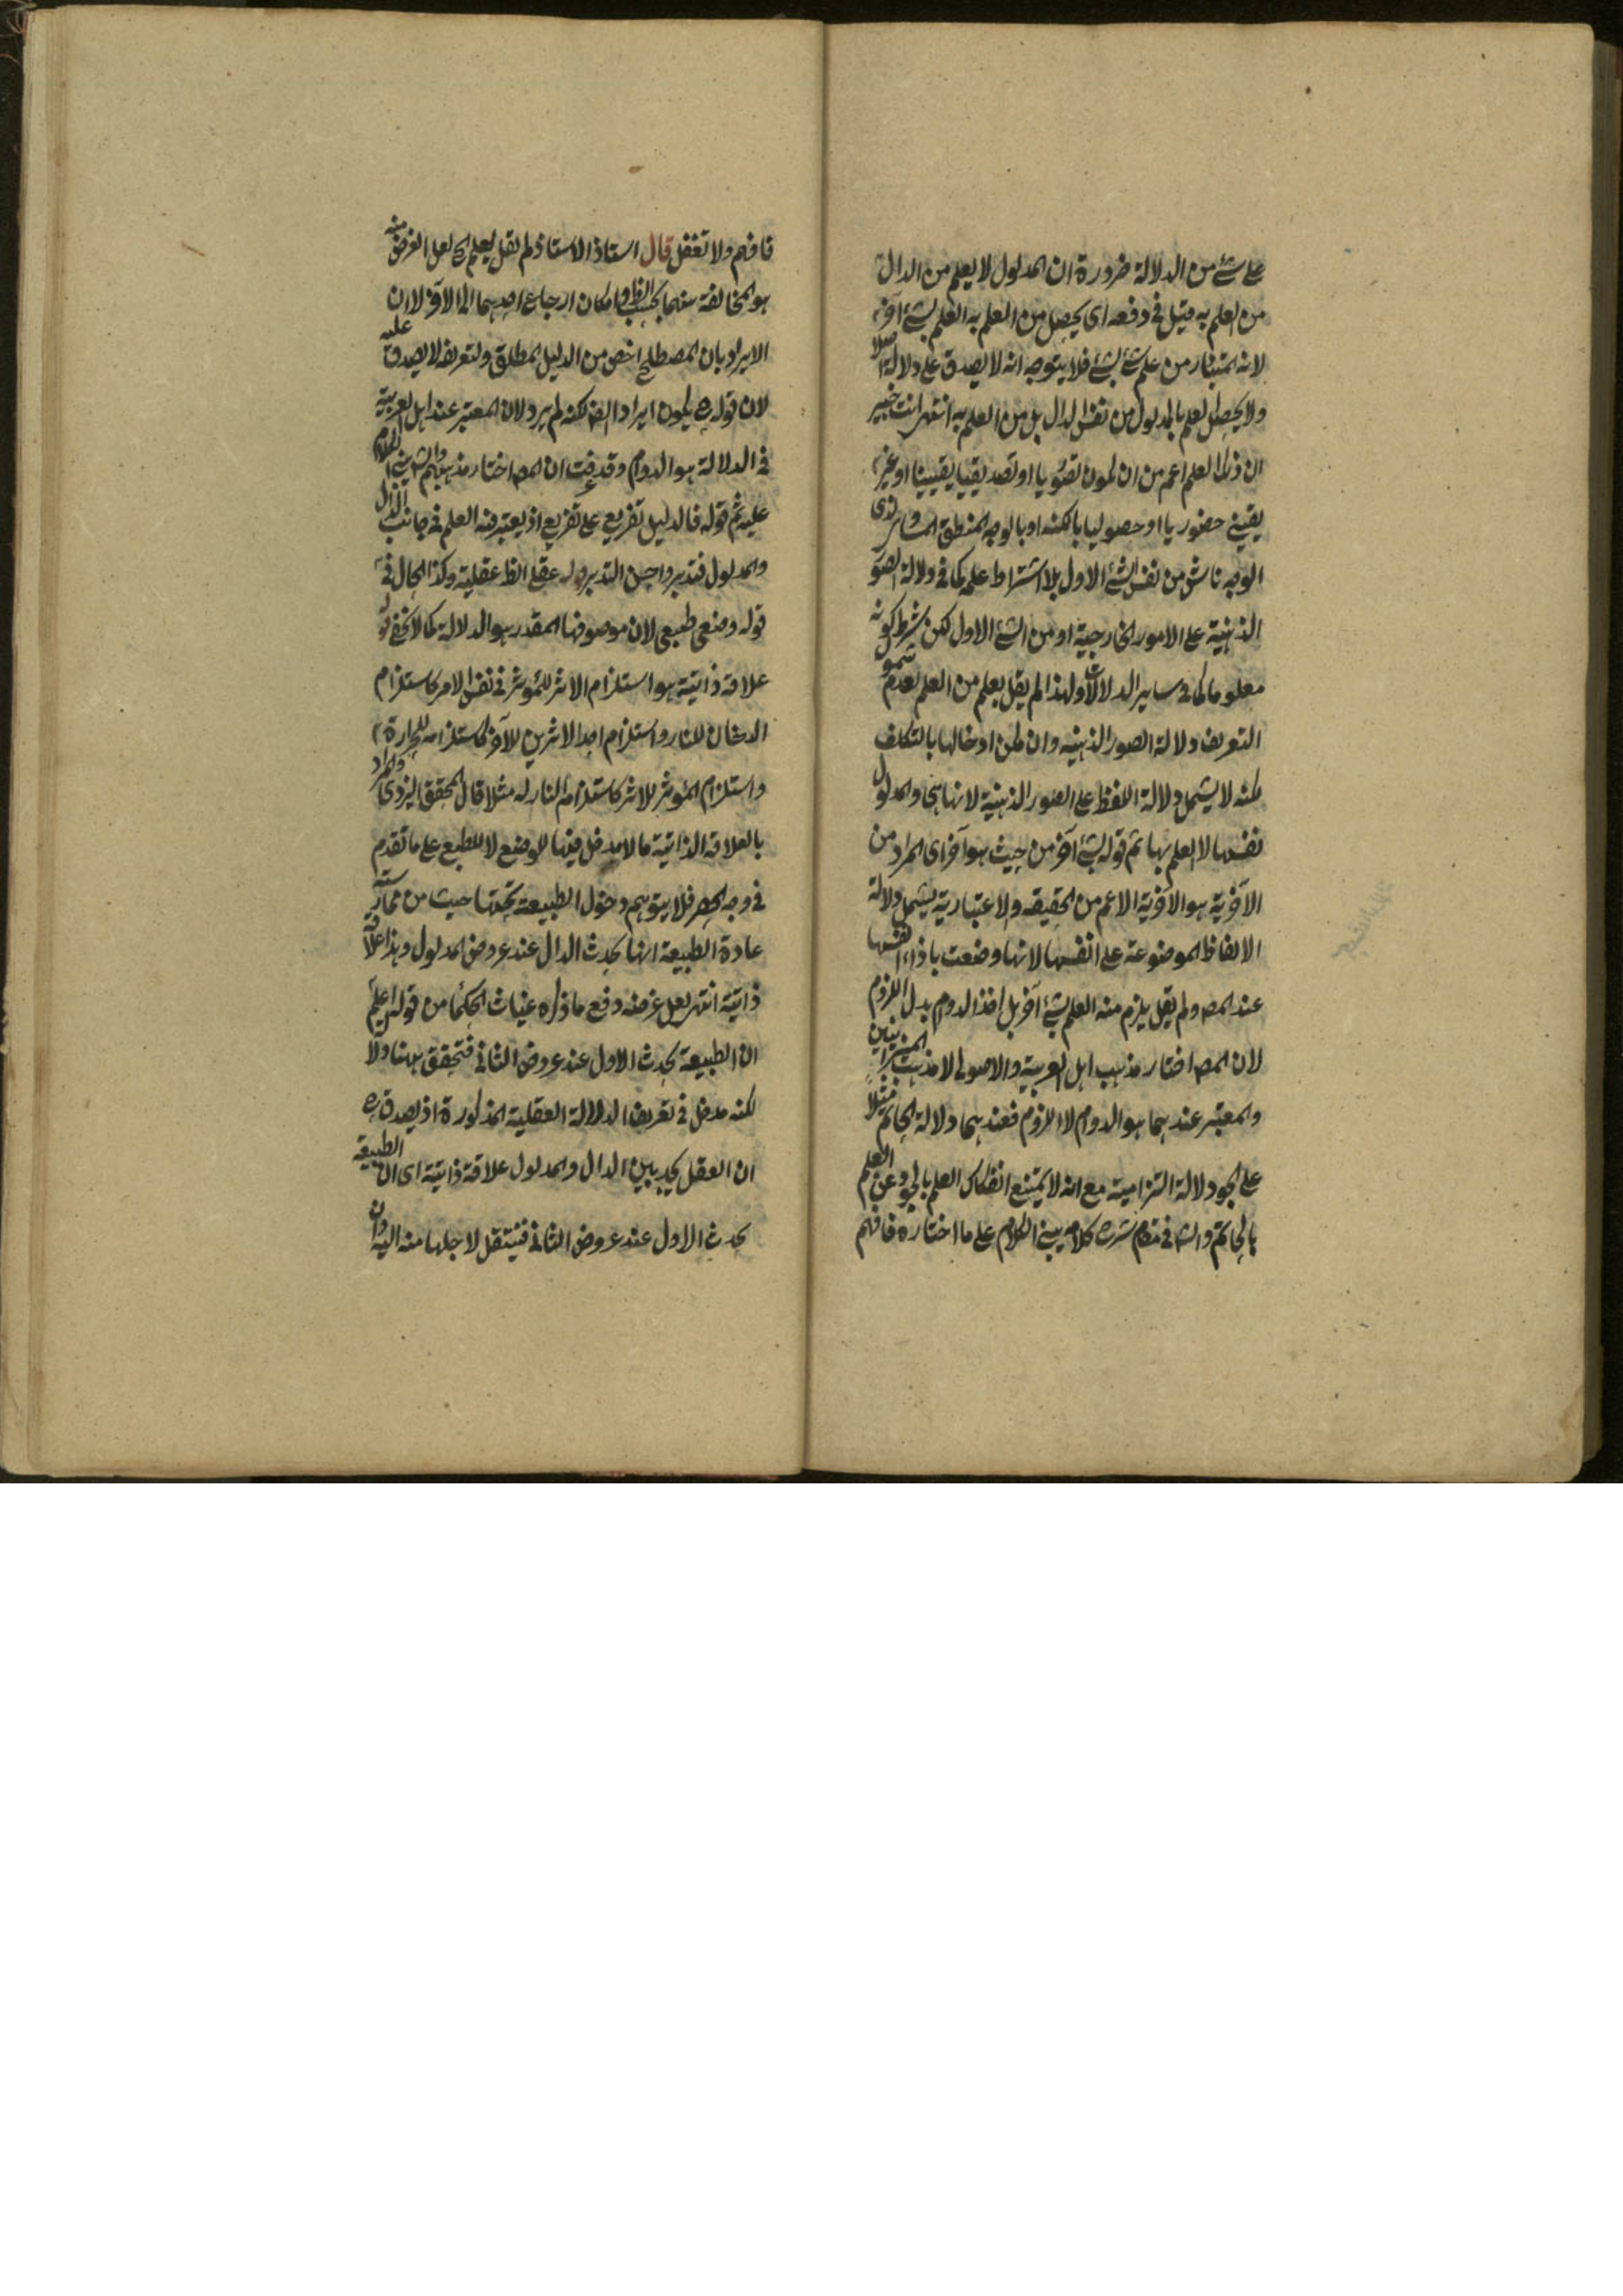 على شئ من الدلالة ضرورة ان المدلول لا يعلم من الدال
من العلم به قيل في دفعه اى يحصل من العلم به العلم بشئ آخر
لانه المتبادر من علم شئ بشئ فلا يتوجه انه لا يصدق على دلالة اصلا
ولا يحصل العلم بالمدلول من نفس الدال بل من العلم به انتهى وانت خبير
ان ذكر العلم اعم من ان يكون تصوريا او تصديقيا يقينيا او غير
يقيني حضوريا او حصوليا بالكنه او بالوجه المنطق
الوجه ناش من نفس الشئ الاول بلا اشتراط علمه كما في دلالة الصور
الذهنية على الامور الخارجية او من الشئ الاول لكن بشرط كونه
معلوما كما في ساير الدلالات ولهذا لم يقل يعلم من العلم لعدم شمو
التعريف دلالة الصور الذهنيه وان امكن ادخالها بالتكلف
لكنه لا يشمل دلالة اللفظ على الصور الذهنية لانها هى والمدلول
نفسها لا العلم بها ثم قوله بشئ آخر من حيث هو آخر اى المراد من
الآخرية هو الآخرية الاعم من الحقيقه والاعتبارية يشمل دلالة
الالفاظ الموضوعة على انفسها لانها وضعت باذاء انفسها
عند المصـ ولم يقل يلزم منه العلم بشئ آخر بل اخذ الدوام بدل اللزوم
لان المصـ اختار مذهب اهل العربية والاصول لا مذهب الميزانيين
والمعتبر عندهما هو الدوام لا اللزوم فعندهما دلالة الحاتم مثلا
على الجود دلالة التزامية مع انه لا يمتنع انفكاك العلم بالجود عن العلم
بالحاتم والشـ في مقام شرح كلامه يبني الكلام على ما اختاره فافهم
فافهم ولا تغفل قال استاذ الاستاذ لم يقل يعلم الخ لعل الغرض منه
هو المخالفة بينهما بحسب الظـ وامكان ارجاع احدهما الى الآخر لا ان
الايراد بان المصطلح اخص من الدليل المطلق وتعريفه لا يصدق عليه
لان قوله ح يكون ايرادا ايضـ لكنه لم يرد لان المعتبر عند اهل العربية
في الدلالة هو الدوام وقد عرفت ان المصـ اختار مذهبهم والشـ يبني الكلام
عليه ثم قوله فالدليل تفريع على تفريع اذ يعتبر فيه العلم في جانب الدال
والمدلول فتدبر واحسن التدبر قوله عقلى الظـ عقلية وكذا الحال في
قوله وضعى طبيعى لان موصوفها المقدر هو الدلالة كما لا يخفى قو
علاقة ذاتية هو استلزام الاثر للمؤثر في نفس الامر كاستلزام
الدخان للنار واستلزام احد الاثرين للآخر كاستلزامه للحرارة
واستلزام المؤثر للاثر كاستلزام النار له مثلا قال المحقق اليزدى والمراد
بالعلاقة الذاتية ما لا مدخل فيها للوضع لا للطبع على ما تقدم
في وجه الحصر فلا يتوهم دخول الطبيعة تحتها حيث من ممارسته
عادة الطبيعة انها يحدث الدال عند عروض المدلول وهذا علاقة
ذاتية انتهى لعل غرضه دفع ما ذكره غياث الحكما من قوله اعلم
ان الطبيعة يحدث الاول عند عروض الثاني فتحقق بهنا دلا
لكنه مدخل في تعريف الدلالة العقلية المذكورة اذ يصدق ح
ان العقل يجد بين الدال والمدلول علاقة ذاتية اى ان الطبيعة
يحدث الاول عند عروض الثاني فينتقل لاجلها منه اليه وان